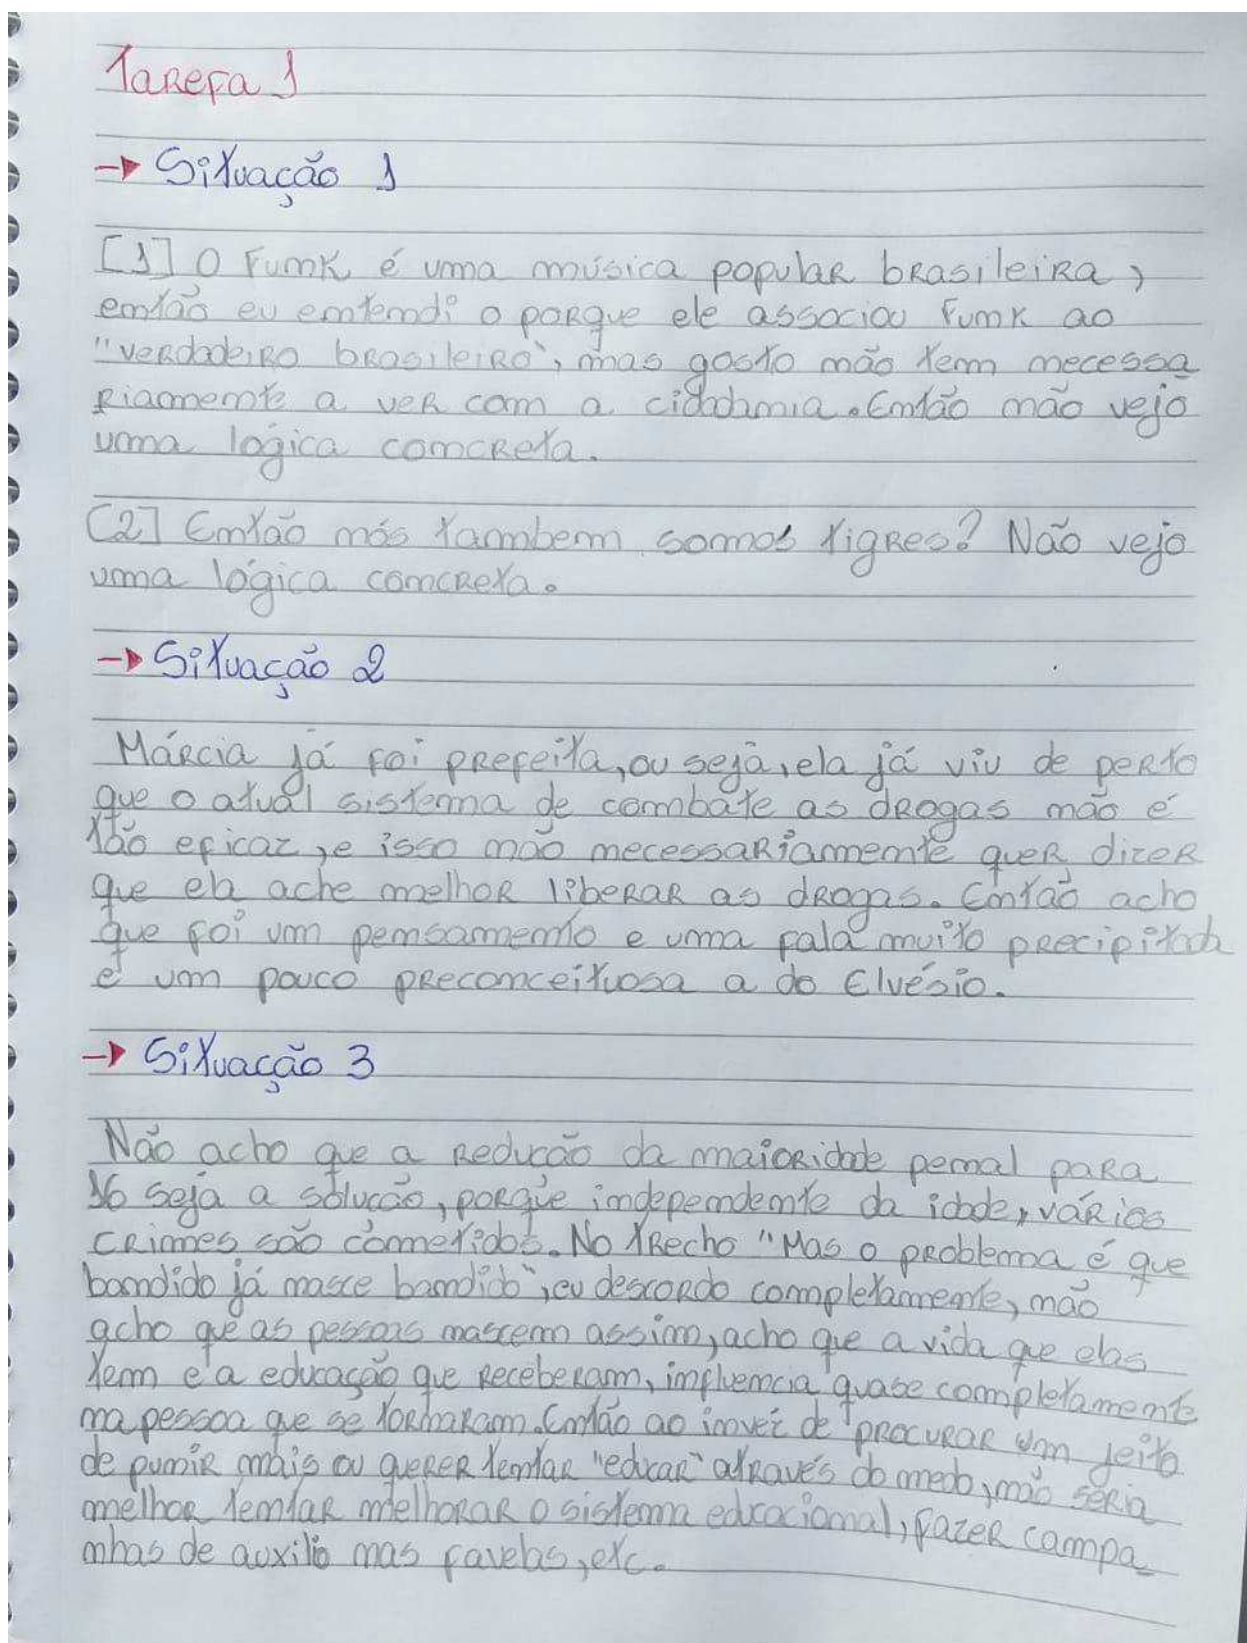 Tarefa 1
→ Situação 1
[1] O Funk é uma música popular brasileira,
então eu entendi o porque ele associou Funk ao
"verdadeiro brasileiro", mas gosto não tem necessa
riamente a ver com a cidadania. Então não vejo
uma lógica concreta.
[2] Então nós também somos tigres? Não vejo
uma lógica concreta.
→ Situação 2
Márcia já foi prefeita, ou seja, ela já viu de perto
que o atual sistema de combate as drogas não é
tão eficaz, e isso não necessariamente quer dizer
que ela ache melhor liberar as drogas. Então acho
que foi um pensamento e uma fala muito precipitada
e um pouco preconceituosa a do Elvésio.
→ Situação 3
Não acho que a redução da maioridade penal para
16 seja a solução, porque independente da idade, vários
crimes são cometidos. No trecho "Mas o problema é que
bandido já nasce bandido", eu descordo completamente, não
acho que as pessoas nascem assim, acho que a vida que elas
tem e a educação que receberam, influencia quase completamente
na pessoa que se tornaram. Então ao invez de procurar um jeito
de punir mais ou querer tentar "educar" através do medo, não seria
melhor tentar melhorar o sistema educacional, fazer campa
nhas de auxilio nas favelas, etc.